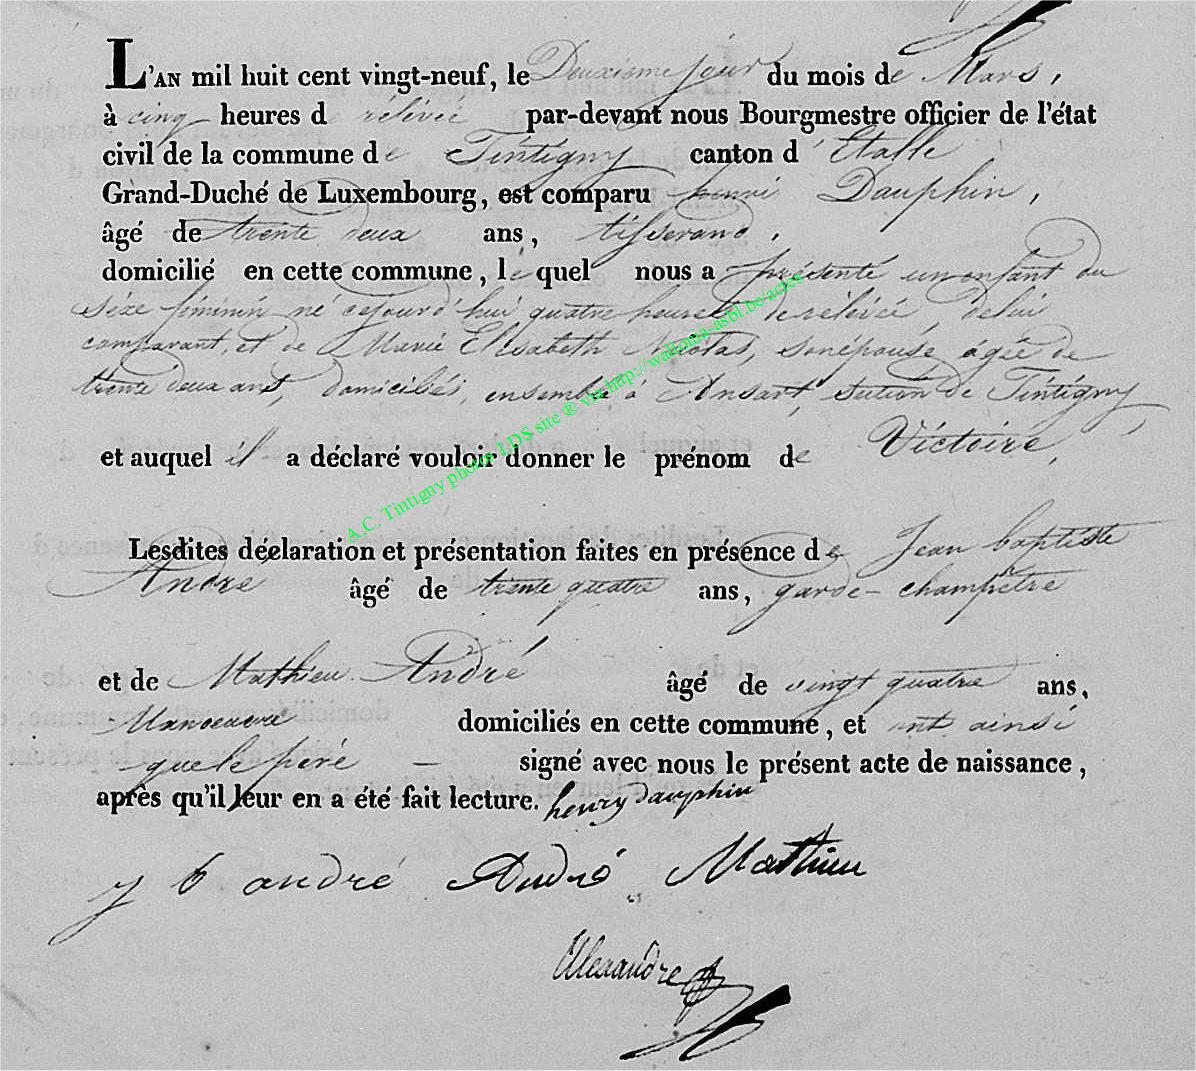 L'AN mil huit cent vingt-neuf, le Deuxisme jour du mois de Mars,
à cinq heures de rélévée par-devant nous Bourgmestre officier de l'état
civil de la commune de Tintigny canton d'Etalle
Grand-Duché de Luxembourg, est comparu henri Dauphin,
âgé de trente deux ans, tisserand,
domicilié en cette commune, lequel nous a présenté un enfant du
séxe féminin né cejourd'hui quatre heures de rélévée, delui
comparant, et de Marie Elisabeth Nicolas, sonépouse, agée de
trente deux ans, domiciliés, ensemble à Ansart, séction de Tintigny
et auquel il a déclaré vouloir donner le prénom de Victoire,
Lesdites déclaration et présentation faites en présence de Jean baptiste
André, âgé de trente quatre ans, garde-champêtre
et de Mathieu André âgé de vingt quatre ans,
Manoeuvre domiciliés en cette commune, et ont ainsi
que le péré — signé avec nous le présent acte de naissance,
après qu'il leur en a été fait lecture. henry dauphin
J b andré André Mathieu
Alexandre
A.C. Tintigny photos LDS site ® via http://wallonia-asbl.be/actes